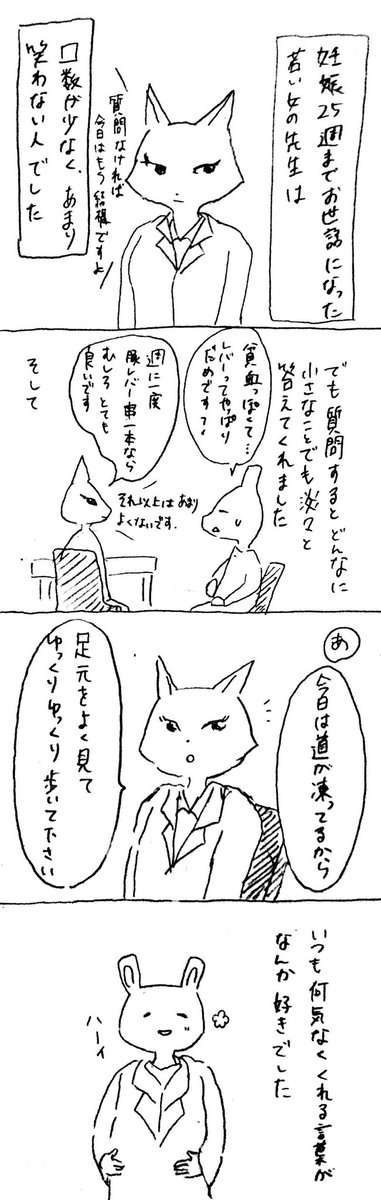 妊娠25週までお世話になった
若い女の先生は
質問なければ
今日はもう結構ですよ
口数が少なく、あまり
笑わない人でした
でも質問するとどんなに
小さなことでも淡々と
答えてくれました
貧血っぽくて…
レバーってやっぱり
だめですか?
週に一度
豚レバー串一本なら
むしろとても
良いです
それ以上はあまり
よくないです.
そして
あ
今日は道が凍ってるから
足元をよく見て
ゆっくりゆっくり歩いて下さい
いつも何気なくくれる言葉が
なんか好きでした
ハーイ